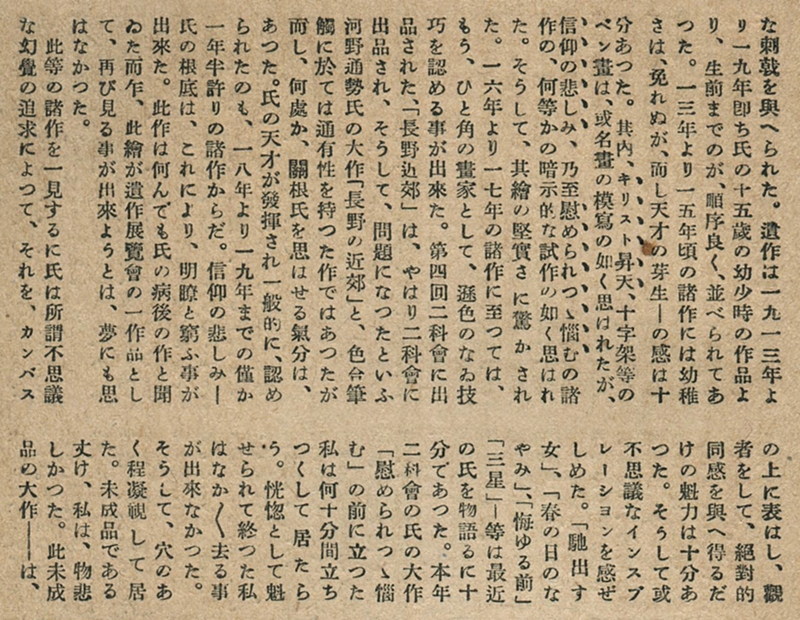 な刺戟を與へられた。遺作は一九一三年よ
り一九年卽ち氏の十五歲の幼少時の作品よ
り、生前までのが、順序良く、並べられてあ
つた。一三年より一五年頃の諸作には幼稚
さは、免れぬが、而し天才の芽生―の感は十
分あつた。其內、キリスト昇天、十字架等の
ペン畫は、或名畫の模寫の如く思はれたが、
信仰の悲しみ、乃至慰められつゝ惱むの諸
作の、何等かの暗示的な試作の如く思はれ
た。そうして、其繪の堅實さに驚かされ
た。一六年より一七年の諸作に至つては、
もう、ひと角の畫家として、遜色のなゐ技
巧を認める事が出來た。第四回二科會に出
品された、「長野近郊」は、やはり二科會に
出品され、そうして、問題になつたといふ
河野通勢氏の大作「長野の近郊」と、色合筆
觸に於ては通有性を持つた作ではあつたが
而し、何處か、關根氏を思はせる氣分は、
あつた。氏の天才が發揮され一般的に、認め
られたのも、一八年より一九年までの僅か
一年半許りの諸作からだ。信仰の悲しみ―
氏の根底は、これにより、明瞭と窮ふ事が
出來た。此作は何んでも氏の病後の作と聞
ゐた而乍、此繪が遺作展覽會の一作品とし
て、再び見る事が出來ようとは、夢にも思
はなかつた。
此等の諸作を一見するに氏は所謂不思議
な幻覺の追求によつて、それを、カンバス
の上に表はし、觀
者をして、絕對的
同感を與へ得るだ
けの魁力は十分あ
つた。そうして或
不思議なインスプ
レーションを感ぜ
しめた。「馳出す
女」、「春の日のな
やみ」、「悔ゆる前」
「三星」―等は最近
の氏を物語るに十
分であつた。本年
二科會の氏の大作
「慰められつゝ惱
む」の前に立つた
私は何十分間立ち
つくして居たら
う。恍惚として魁
せられて終つた私
はなか〱去る事
が出來なかつた。
そうして、穴のあ
く程凝視して居
た。未成品である
丈け、私は、物悲
しかつた。此未成
品の大作――は、